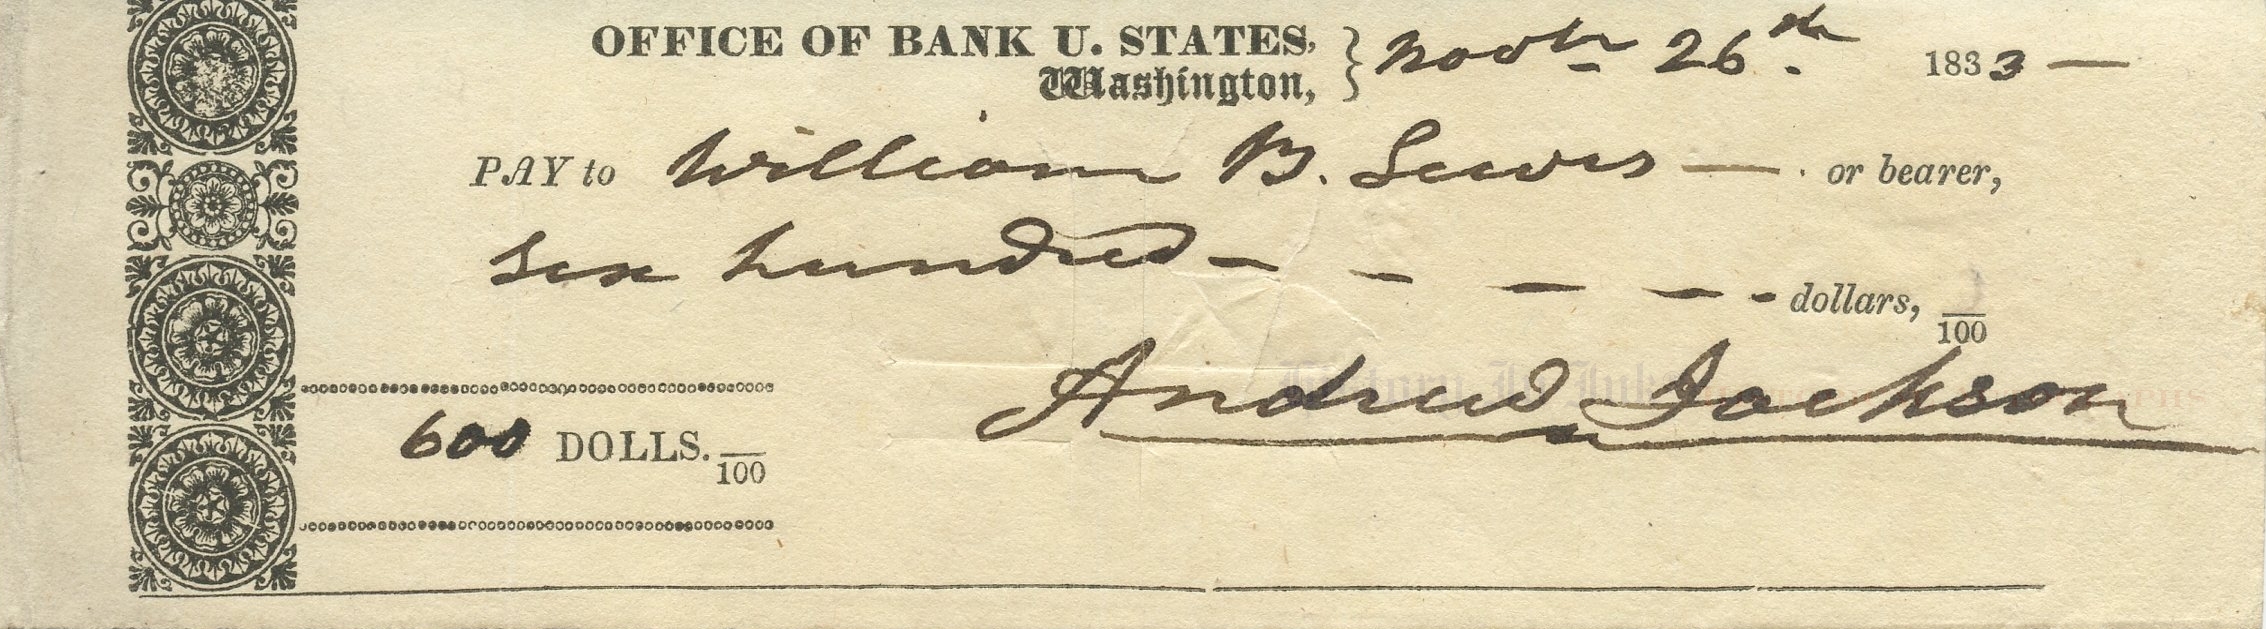 OFFICE OF BANK U. STATES,
Washington, } Novbr 26th. 1833 —
PAY to William B. Lewis — or bearer,
Six hundred - - - - - dollars, /100
Andrew Jackson
600 DOLLS. /100